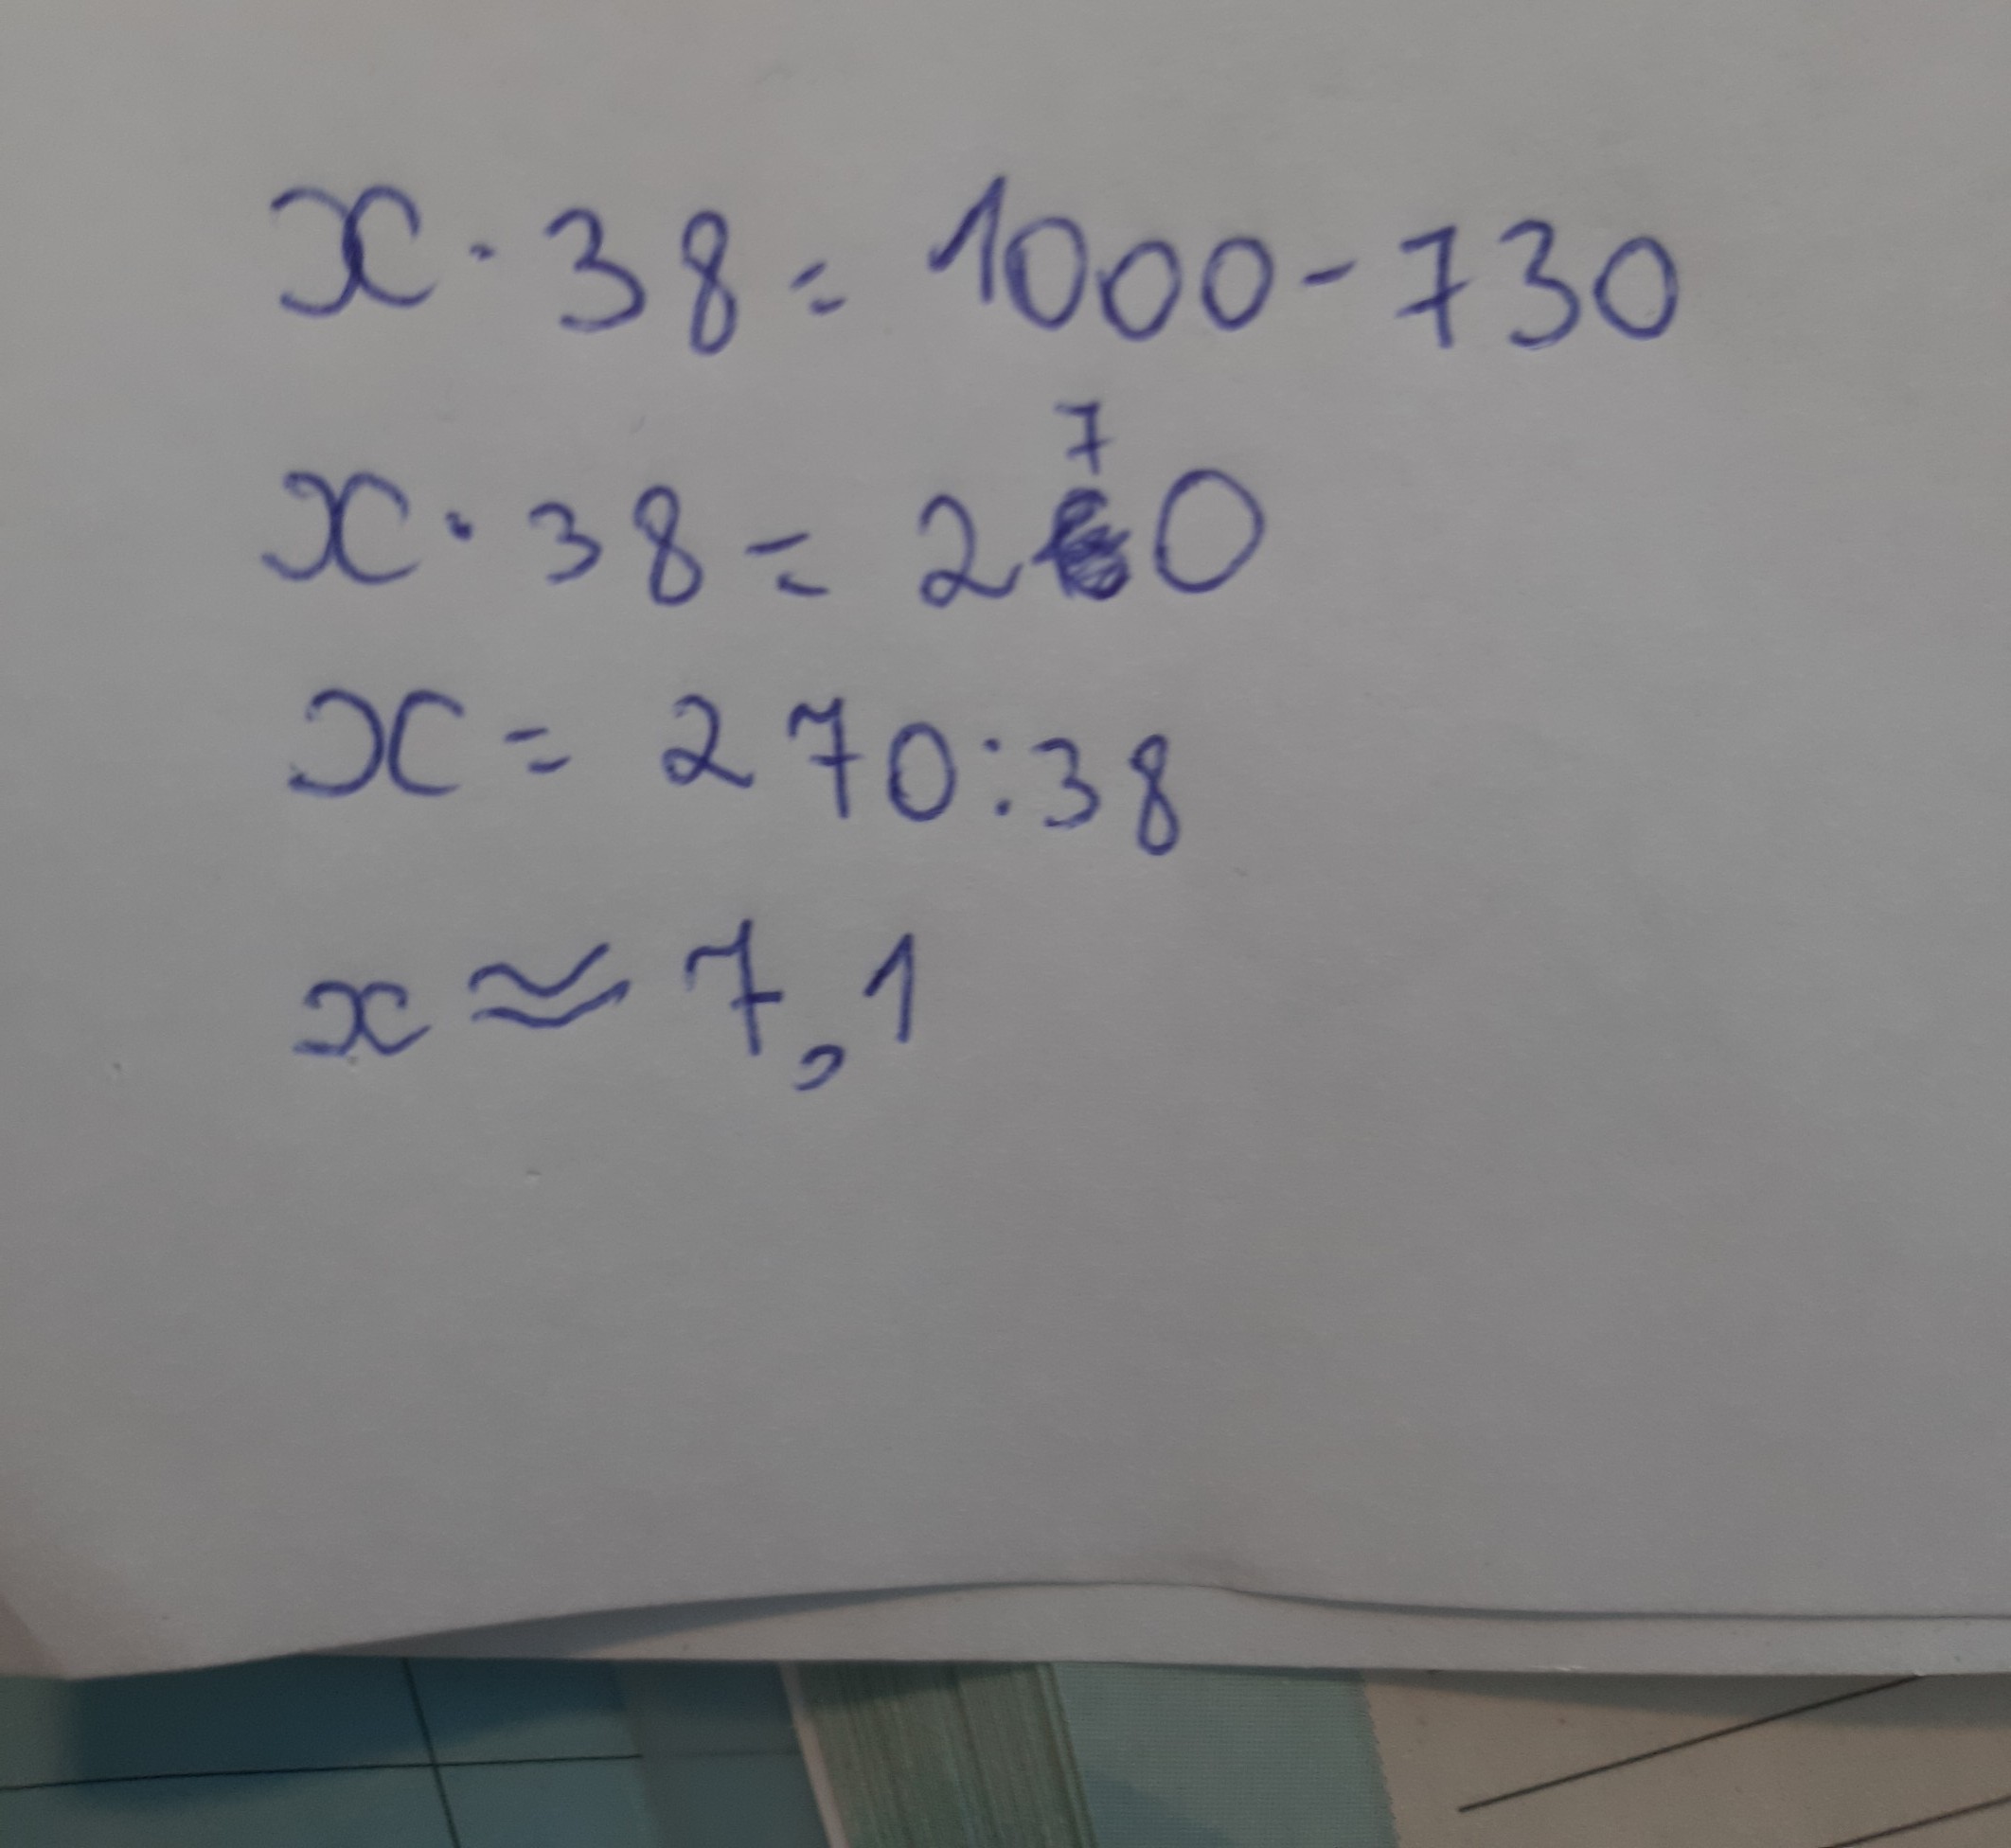 x · 38 = 1000 - 730
x · 38 = 270
x = 270 : 38
x ≈ 7,1